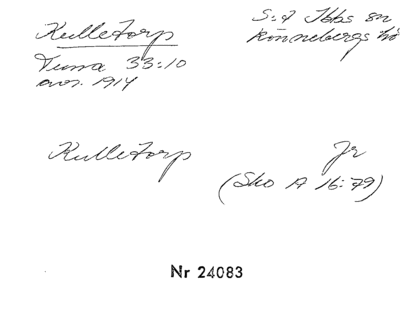 Kulletorp
S:t Ibbs sn
Rönnebergs hd
Tuna 33:10
avs. 1914
Kulletorp
Jr
(Sko A 16:79)
Nr 24083